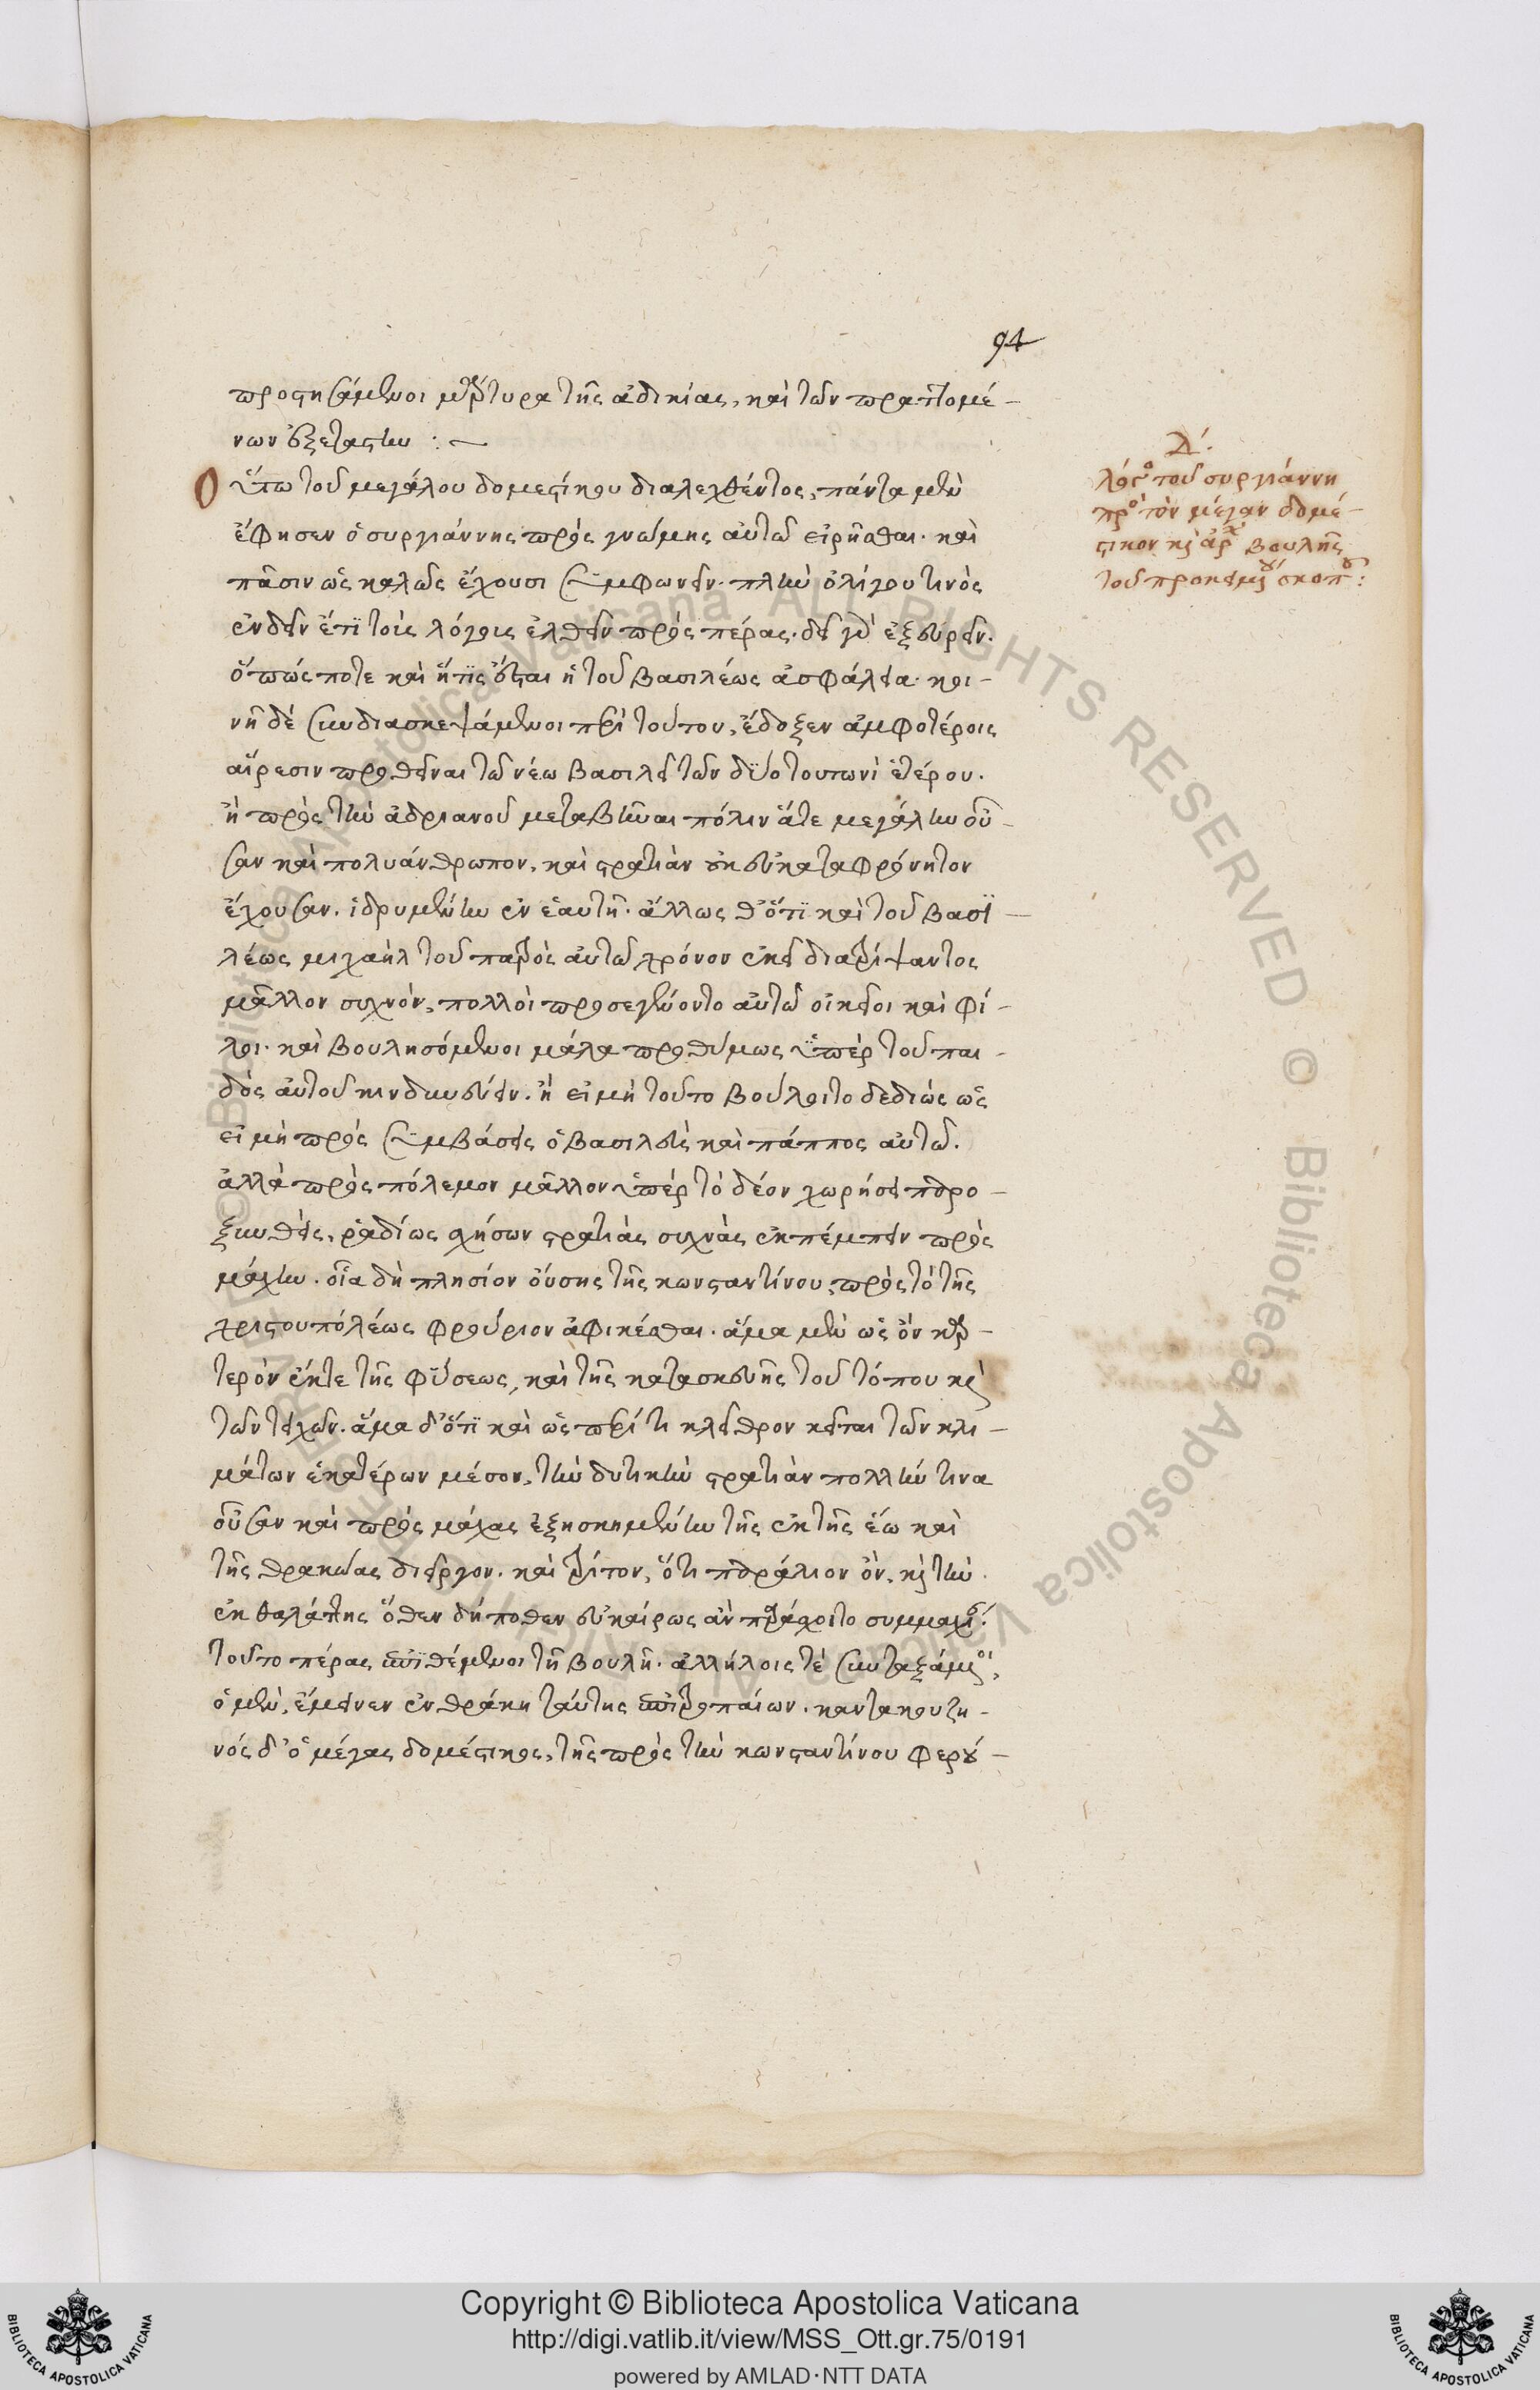 94
προστησάμενοι μάρτυρα τῆς ἀδικίας, καὶ τῶν πραττομέ-
νων ἐξεταστήν :~
Οὕτω τοῦ μεγάλου δομεστίκου διαλεχθέντος, πάντα μὲν
ἔφησεν ὁ συργιάννης πρὸς γνώμης αὐτῶ εἰρῆσθαι· καὶ
πᾶσιν ὡς καλῶς ἔχουσι συμφωνεῖν· πλὴν ὀλίγου τινὸς
ἐνδεῖν ἔτι τοῖς λόγοις ἐλθεῖν πρὸς πέρας· δεῖ γὰρ ἐξευρεῖν.
ὅπώς ποτε καὶ ἥτις ἔσται ἡ τοῦ βασιλέως ἀσφάλεια· κοι-
νῆ δὲ συνδιασκεψάμενοι περὶ τούτου, ἔδοξεν ἀμφοτέροις
αἵρεσιν προθεῖναι τῶ νέω βασιλεῖ τῶν δύο τουτωνὶ ἑτέρου.
ἢ πρὸς τὴν ἀδριανοῦ μεταβῆναι πόλιν ἅτε μεγάλην οὖ-
σαν καὶ πολυάνθρωπον, καὶ στρατιὰν οὐκ εὐκαταφρόνητον
ἔχουσαν, ἱδρυμένην ἐν ἑαυτῆ· ἄλλως θ' ὅτι καὶ τοῦ βασι-
λέως μιχαὴλ τοῦ πατρὸς αὐτῶ χρόνον ἐκεῖ διατρίψαντος
μᾶλλον συχνὸν, πολλοὶ προσεγένοντο αὐτῶ οἰκεῖοι καὶ φί-
λοι· καὶ βουλησόμενοι μάλα προθύμως ὑπὲρ τοῦ παι-
δὸς αὐτοῦ κινδυνεύειν. ἢ εἰ μὴ τοῦτο βούλοιτο δεδιὼς ὡς
εἰ μὴ πρὸς συμβάσεις ὁ βασιλεὺς καὶ πάππος αὐτῶ.
ἀλλὰ πρὸς πόλεμον μᾶλλον ὑπὲρ τὸ δέον χωρήσει παρο-
ξυνθεὶς, ῥαδίως σχήσων στρατιὰς συχνὰς ἐκπέμπειν πρὸς
μάχην. οἷα δὴ πλησίον οὔσης τῆς κωνσταντίνου, πρὸς τὸ τῆς
χριστουπόλεως φρούριον ἀφικέσθαι. ἅμα μὲν ὡς ὂν καρ-
τερὸν ἔκ τε τῆς φύσεως, καὶ τῆς κατασκευῆς τοῦ τόπου καὶ
τῶν τειχῶν. ἅμα δ' ὅτι καὶ ὥσπερ τι κλεῖθρον κεῖται τῶν κλι-
μάτων ἑκατέρων μέσον, τὴν δυτικὴν στρατιὰν πολλήν τινα
οὖσαν καὶ πρὸς μάχας ἐξησκημένην τῆς ἐκ τῆς ἕω καὶ
τῆς θρακώας διεῖργον. καὶ τρίτον, ὅτι παράλιον ὂν, καὶ τὴν
ἐκ θαλάττης ὅθεν δήποθεν εὐκαίρως ἂν προσάγοιτο συμμαχίαν·
τοῦτο πέρας ἐπιθέμενοι τῆ βουλῆ. ἀλλήλοις τὲ συνταξάμενοι,
ὁ μὲν, ἔμεινεν ἐν θράκη ταύτης ἐπιτροπεύων. καντακουζη-
νός δ' ὁ μέγας δομέστικος, τῆς πρὸς τὴν κωνσταντίνου φερού-
Δ΄.
λόγος τοῦ συργιάννη
πρὸς τὸν μέγαν δομέ-
στικον καὶ ἀρχὴ βουλῆς
τοῦ προκειμένου σκοποῦ:
Copyright © Biblioteca Apostolica Vaticana
http://digi.vatlib.it/view/MSS_Ott.gr.75/0191
powered by AMLAD·NTT DATA